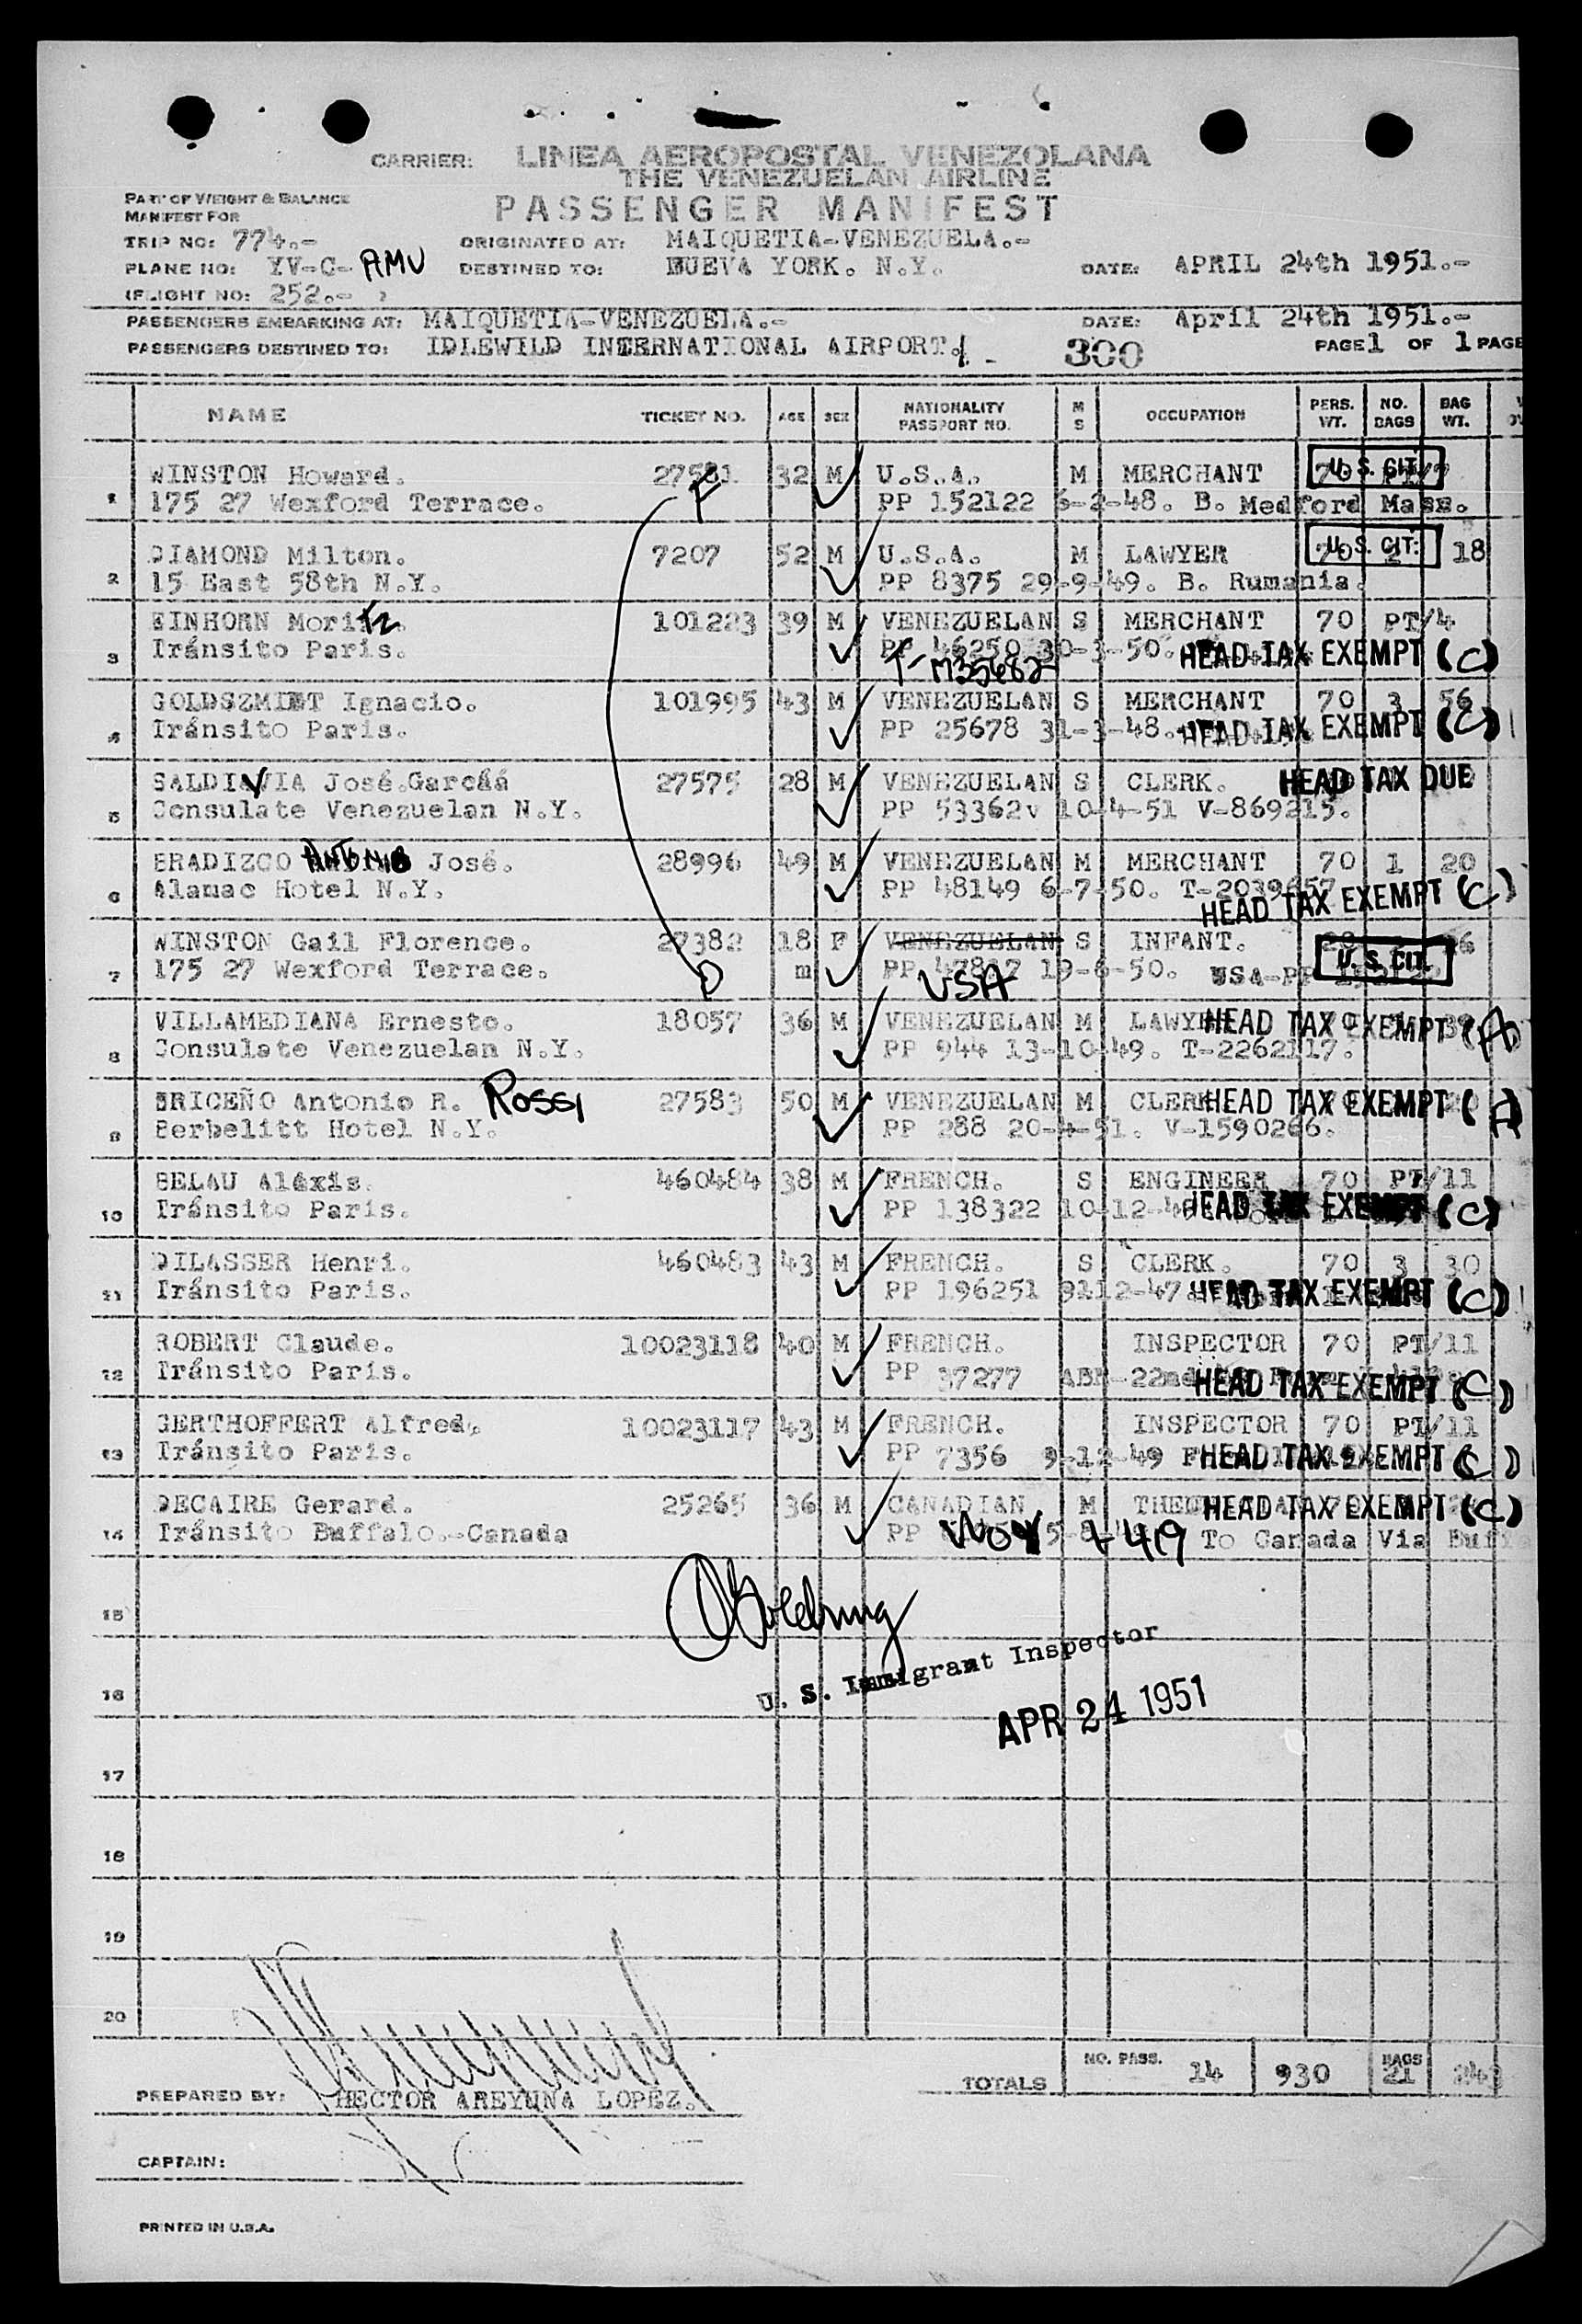 CARRIER: LINEA AEROPOSTAL VENEZOLANA
THE VENEZUELAN AIRLINE
PART OF WEIGHT & BALANCE
MANIFEST FOR
PASSENGER MANIFEST
TRIP NO: 774.-
ORIGINATED AT: MAIQUETIA-VENEZUELA.-
PLANE NO: YV-C- AMU
DESTINED TO: NUEVA YORK. N.Y.
DATE: APRIL 24th 1951.-
(FLIGHT NO: 252.- )
PASSENGERS EMBARKING AT: MAIQUETIA-VENEZUELA.-
DATE: April 24th 1951.-
PASSENGERS DESTINED TO: IDLEWILD INTERNATIONAL AIRPORT.
300
PAGE 1 OF 1 PAGE
NAME TICKET NO. AGE SEX NATIONALITY PASSPORT NO. M S OCCUPATION PERS. WT. NO. BAGS BAG WT.
WINSTON Howard. 27581 32 M U.S.A. M MERCHANT 70 U.S. CIT.
1 175 27 Wexford Terrace. F PP 152122 6-2-48. B. Medford Mass.
DIAMOND Milton. 7207 52 M U.S.A. M LAWYER 70 U.S. CIT. 18
2 15 East 58th N.Y. PP 8375 29-9-49. B. Rumania.
EINHORN Moritz. 101223 39 M VENEZUELAN S MERCHANT 70 PT/4
3 Tránsito Paris. PP 46250 30-3-50. HEAD TAX EXEMPT (C)
T-M35682
GOLDSZMIDT Ignacio. 101995 43 M VENEZUELAN S MERCHANT 70 3 56
4 Tránsito Paris. PP 25678 31-3-48. HEAD TAX EXEMPT (C)
SALDIVIA José Garcáá 27575 28 M VENEZUELAN S CLERK. HEAD TAX DUE
5 Consulate Venezuelan N.Y. PP 53362v 10-4-51 V-869215.
BRADIZCO ANTONIO José. 28996 49 M VENEZUELAN M MERCHANT 70 1 20
6 Alamac Hotel N.Y. PP 48149 6-7-50. HEAD TAX EXEMPT (C)
WINSTON Gail Florence. 27382 18 F VENEZUELAN S INFANT.
7 175 27 Wexford Terrace. D m PP 47817 19-6-50. USA-PP U.S. CIT.
USA
VILLAMEDIANA Ernesto. 18057 36 M VENEZUELAN M LAWYER HEAD TAX EXEMPT (A)
8 Consulate Venezuelan N.Y. PP 944 13-10-49. T-2262117.
BRICEÑO Antonio R. ROSSI 27583 50 M VENEZUELAN M CLERK HEAD TAX EXEMPT (A)
9 Berbelitt Hotel N.Y. PP 288 20-4-51. V-1590266.
BELAU Aléxis. 460484 38 M FRENCH. S ENGINEER 70 PT/11
10 Tránsito Paris. PP 138322 HEAD TAX EXEMPT (C)
DILASSER Henri. 460483 43 M FRENCH. S CLERK. 70 3 30
11 Tránsito Paris. PP 196251 9112-47 HEAD TAX EXEMPT (C)
ROBERT Claude. 10023118 40 M FRENCH. INSPECTOR 70 PT/11
12 Tránsito Paris. PP 37277 HEAD TAX EXEMPT (C)
GERTHOFFERT Alfred. 10023117 43 M FRENCH. INSPECTOR 70 PT/11
13 Tránsito Paris. PP 7356 9-12-49 HEAD TAX EXEMPT (C)
DECAIRE Gerard. 25265 36 M CANADIAN M HEAD TAX EXEMPT (C)
14 Tránsito Buffalo.-Canada PP To Canada Via
15
U. S. Immigrant Inspector
16
APR 24 1951
17
18
19
20
TOTALS NO. PASS. 14 930 BAGS 21
PREPARED BY: HECTOR AREYUNA LOPEZ.
CAPTAIN:
PRINTED IN U.S.A.